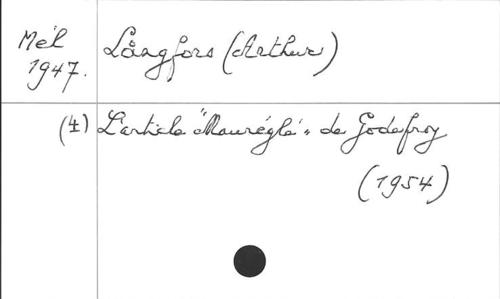 Mél
1947.
Långfors (Arthur)
(4) L'article "Mauréglé" de Godefroy
(1954)